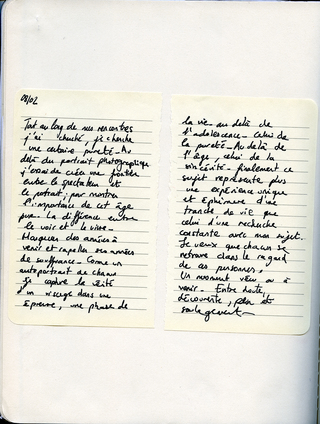 08/02
Tout au long de mes rencontres
j'ai cherché, je cherche
une certaine pureté - Au
delà du portrait photographique
j'essai de créer une fiction
entre le spectateur et
le portrait, pour montrer
l'importance de cet âge
pur. La différence entre
le voir et le vivre -
Marquer des années à
venir et rappeler ses années
de souffrance - Comme un
autoportrait de chacun
Je capture la vérité
d'un visage dans une
épreuve, une phase de
la vie - au delà de
l'adolescence - Celui de
la pureté - Au delà de
l'âge, celui de la
sincérité - finalement ce
sujet représente plus
une expérience unique
et éphémère d'une
tranche de vie que
celui d'une recherche
constante avec mon sujet.
Je veux que chacun se
retrouve dans le regard
de ces personnes,
Un moment vécu ou à
venir - Entre doute,
découverte, peur et
soulagement -